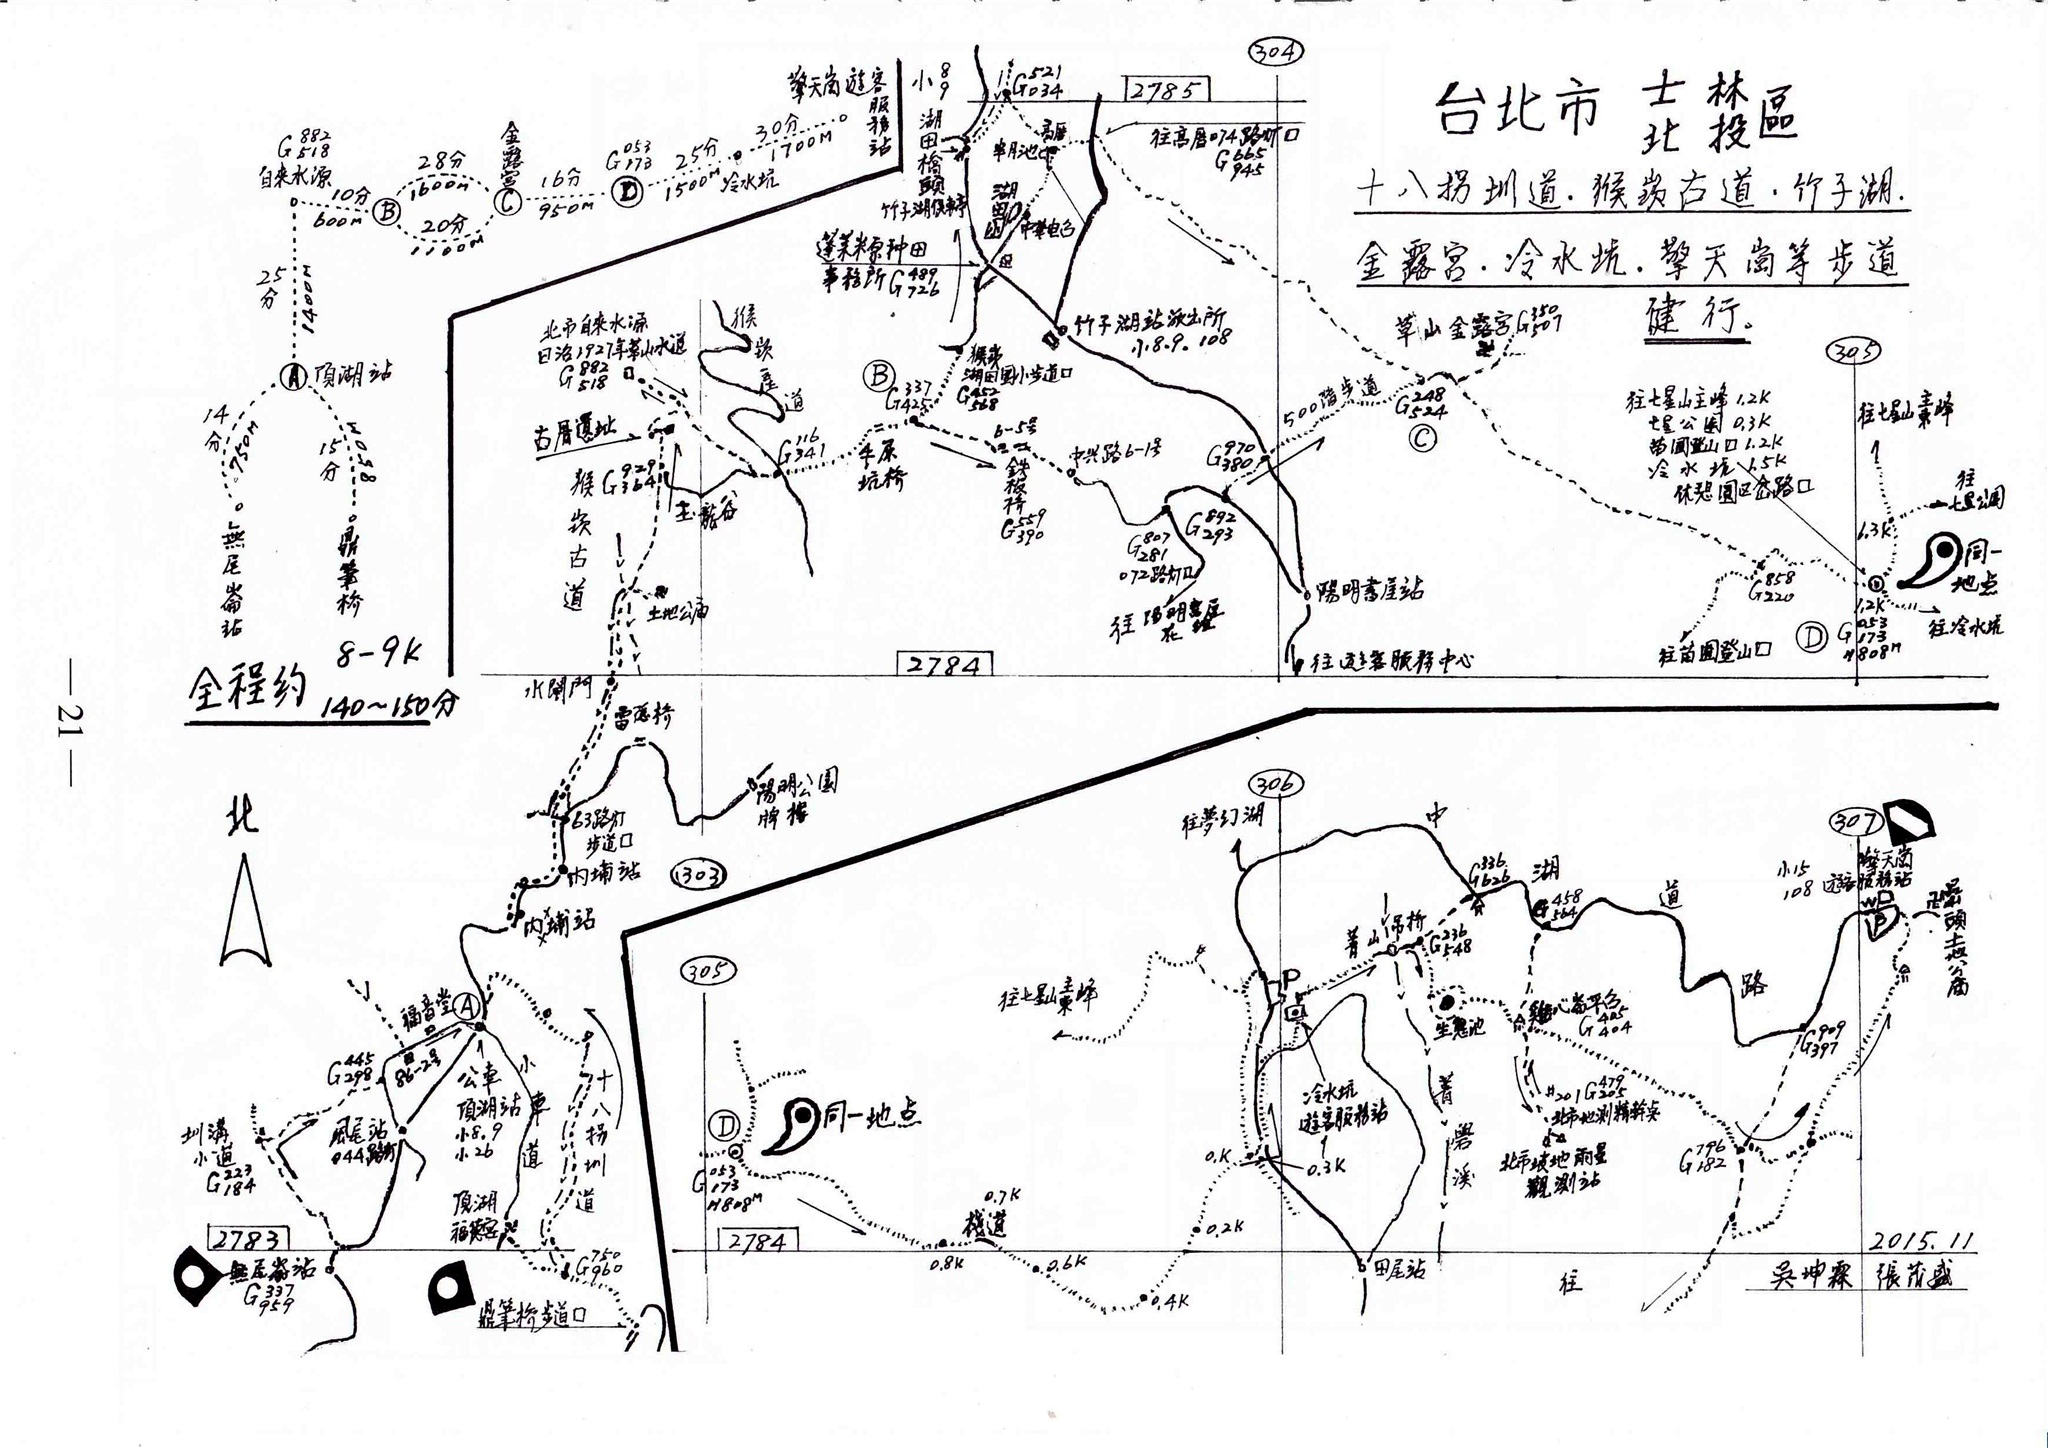 台北市 士林 北投 區
十八拐圳道.猴崁古道.竹子湖.
金露宮.冷水坑.擎天崗等步道
健行。
G 882 518
自來水源
10分
600M
B
28分
1600M
20分
1100M
金露宮
C
16分
950M
G 053 173
D
25分
1500M
冷水坑
30分
1700M
擎天崗遊客服務站
25分
1400M
A 頂湖站
14分
750M
無尾崙站
15分
850M
鼎筆橋
全程約 8-9K
140~150分
小 8 9
湖田橋頭
G 521 034
2785
304
往高厝074路灯口
G 665 945
高厝
半月池
竹子湖候車亭
湖田國小
中華电台
蓬萊米原种田
事務所 G 489 726
竹子湖站派出所
小8.9. 108
草山金露宮 G 350 507
305
北市自來水源
日治1927年草山水道
G 882 518
猴崁產道
B
G 337 425
猴崁
湖田国小步道口
G 452 568
500階步道
G 248 524
C
往七星山主峰 1.2K
七星公園 0.3K
苗圃登山口 1.2K
冷水坑 1.5K
休憩園区岔路口
往七星山主東峰
往七星公園
1.3K
同一地点
古厝遺址
猴崁古道
G 929 364
G 116 341
玉瀧谷
半原坑橋
6-5号
鉄板橋
G 559 390
中興路6-1号
G 970 380
G 892 293
G 807 281
072路灯口
往陽明書屋花鐘
陽明書屋站
往遊客服務中心
G 858 220
往苗圃登山口
D
1.2K
G 053 173
H808M
往冷水坑
土地公庙
2784
水閘門
雷隱桥
陽明公園牌樓
63路灯步道口
内埔站
内埔站
303
北
福音堂
A
G 445 298
86-2号
公車
頂湖站
小8.9
小26
小車道
十八拐圳道
圳溝小道
G 223 184
鳳尾站
044路灯
頂湖福德宮
2783
無尾崙站
G 337 959
鼎筆桥步道口
G 750 960
305
D
同一地点
G 053 173
H808M
2784
往七星山主東峰
0.8K
0.7K
棧道
0.6K
0.4K
0.2K
0.K
0.3K
306
往夢幻湖
中湖道路
P
冷水坑遊客服務站
菁山吊桥
G 336 626
G 236 548
G 458 564
生態池
雞心崙平台
G 405 404
菁礐溪
#201 G 479 205
北市地測精幹点
北市坡地雨量觀測站
田尾站
往
307
小15
108
擎天崗遊客服務站
WC
P
嵒頭土地公庙
G 909 397
G 796 182
2015.11
吳坤霖 張茂盛
—21—